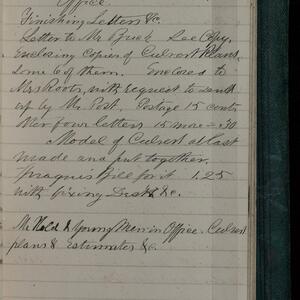 Office.
Finishing Letters &c.
Letter to Mr Speck. See Copy.
Enclosing Copies of Culvert Plans,
some 6 of them. Enclosed to
Mrs Roots, with request to send
up by Mr Post. Postage 15 cents
other four letters 15 more = 30
Model of Culvert at last
made and put together.
bill for it 1.25
with fixing Desk &c.
Mr Hold & Young Men in Office. Culvert
plans & Estimates &c.